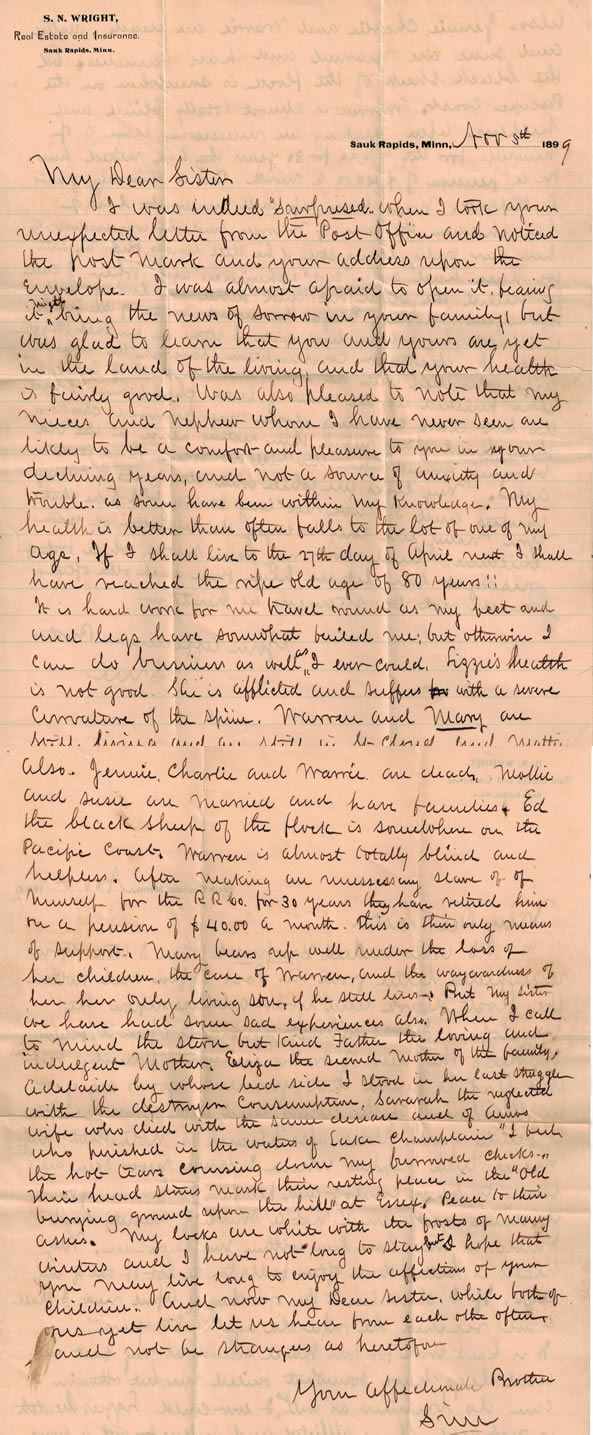 S. N. WRIGHT,
Real Estate and Insurance.
Sauk Rapids, Minn.
Sauk Rapids, Minn, Nov 5th 1899
My Dear Sister
I was indeed "surprised" when I took your
unexpected letter from the Post Office and noticed
the post mark and your address upon the
Envelope. I was almost afraid to open it, fearing
it might bring the news of sorrow in your family, but
was glad to learn that you and yours are yet
in the land of the living, and that your health
is fairly good. Was also pleased to note that my
nieces and nephew whom I have never seen are
likely to be a comfort and pleasure to you in your
declining years, and not a source of anxiety and
trouble. as some have been within my knowledge. My
health is better than often falls to the lot of one of my
age. If I shall live to the 27th day of April next I shall
have reached the ripe old age of 80 years!!
It is hard work for me travel around as my feet and
and legs have somewhat failed me; but otherwise I
can do business as well "I ever could. Lizzie's health
is not good. She is afflicted and suffers with a severe
Curvature of the spine. Warren and Mary are
still living and are still in St Cloud and Mattie
also. Jennie, Charlie and Warrie are dead. Mollie
and Susie are married and have families. Ed
the black sheep of the flock is somewhere on the
Pacific Coast. Warren is almost totally blind and
helpless. After making an unnessessary slave of of
himself for the R R Co. for 30 years they have retired him
on a pension of $40.00 a month. This is their only means
of support. Mary bears up well under the loss of
her children, the care of Warren, and the waywardness of
her her only living son, if he still lives. But my sister
we have had some sad experiences also. When I call
to mind the stern but kind Father the loving and
indulgent Mother, Eliza the second mother of the family,
Adelaide by whose bed side I stood in her last struggle
with the destroyer Consumption, Savarah the neglected
wife who died with the same disease and of Amos
who perished in the waters of Lake Champlain "I feel
the hot tears coursing down my furrowed cheeks."
Their head stones mark their resting place in the "Old
burying ground upon the hill" at Essex. Peace to their
ashes. My locks are white with the frosts of many
winters and I have not long to stay but I hope that
you may live long to enjoy the affections of your
Children. And now my Dear Sister, while both of
ours yet live let us hear from each other often,
and not be strangers as heretofore
Your affectionate Brother